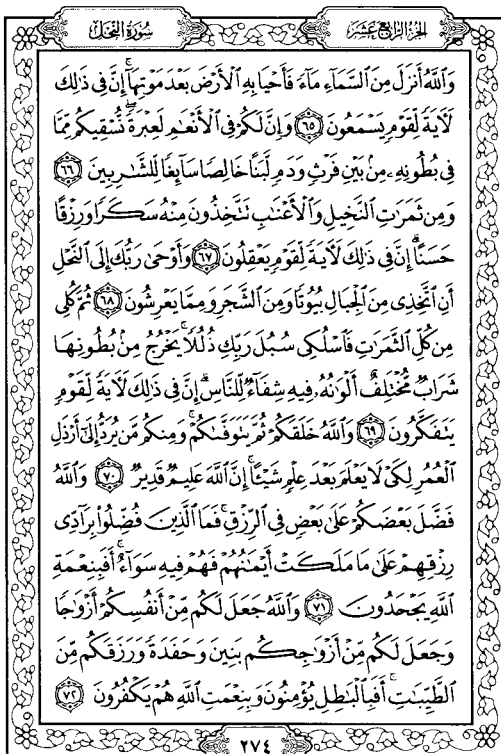 سُورَةُ النَّحۡلِ
الجُزْءُ الرَّابِعَ عَشَرَ
وَٱللَّهُ أَنزَلَ مِنَ ٱلسَّمَآءِ مَآءً فَأَحۡيَا بِهِ ٱلۡأَرۡضَ بَعۡدَ مَوۡتِهَآۚ إِنَّ فِي ذَٰلِكَ
لَأٓيَةً لِّقَوۡمٖ يَسۡمَعُونَ ٦٥ وَإِنَّ لَكُمۡ فِي ٱلۡأَنۡعَٰمِ لَعِبۡرَةٗۖ نُّسۡقِيكُم مِّمَّا
فِي بُطُونِهِۦ مِنۢ بَيۡنِ فَرۡثٖ وَدَمٖ لَّبَنًا خَالِصٗا سَآئِغٗا لِّلشَّٰرِبِينَ ٦٦
وَمِن ثَمَرَٰتِ ٱلنَّخِيلِ وَٱلۡأَعۡنَٰبِ تَتَّخِذُونَ مِنۡهُ سَكَرٗا وَرِزۡقًا
حَسَنًاۗ إِنَّ فِي ذَٰلِكَ لَأٓيَةٗ لِّقَوۡمٖ يَعۡقِلُونَ ٦٧ وَأَوۡحَىٰ رَبُّكَ إِلَى ٱلنَّحۡلِ
أَنِ ٱتَّخِذِي مِنَ ٱلۡجِبَالِ بُيُوتٗا وَمِنَ ٱلشَّجَرِ وَمِمَّا يَعۡرِشُونَ ٦٨ ثُمَّ كُلِي
مِن كُلِّ ٱلثَّمَرَٰتِ فَٱسۡلُكِي سُبُلَ رَبِّكِ ذُلُلٗاۚ يَخۡرُجُ مِنۢ بُطُونِهَا
شَرَابٞ مُّخۡتَلِفٌ أَلۡوَٰنُهُۥ فِيهِ شِفَآءٞ لِّلنَّاسِۗ إِنَّ فِي ذَٰلِكَ لَأٓيَةٗ لِّقَوۡمٖ
يَتَفَكَّرُونَ ٦٩ وَٱللَّهُ خَلَقَكُمۡ ثُمَّ يَتَوَفَّىٰكُمۡۚ وَمِنكُم مَّن يُرَدُّ إِلَىٰٓ أَرۡذَلِ
ٱلۡعُمُرِ لِكَيۡ لَا يَعۡلَمَ بَعۡدَ عِلۡمٖ شَيۡـًٔاۚ إِنَّ ٱللَّهَ عَلِيمٞ قَدِيرٞ ٧٠ وَٱللَّهُ
فَضَّلَ بَعۡضَكُمۡ عَلَىٰ بَعۡضٖ فِي ٱلرِّزۡقِۚ فَمَا ٱلَّذِينَ فُضِّلُواْ بِرَآدِّي
رِزۡقِهِمۡ عَلَىٰ مَا مَلَكَتۡ أَيۡمَٰنُهُمۡ فَهُمۡ فِيهِ سَوَآءٌۚ أَفَبِنِعۡمَةِ
ٱللَّهِ يَجۡحَدُونَ ٧١ وَٱللَّهُ جَعَلَ لَكُم مِّنۡ أَنفُسِكُمۡ أَزۡوَٰجٗا
وَجَعَلَ لَكُم مِّنۡ أَزۡوَٰجِكُم بَنِينَ وَحَفَدَةٗ وَرَزَقَكُم مِّنَ
ٱلطَّيِّبَٰتِۚ أَفَبِٱلۡبَٰطِلِ يُؤۡمِنُونَ وَبِنِعۡمَتِ ٱللَّهِ هُمۡ يَكۡفُرُونَ ٧٢
٢٧٤